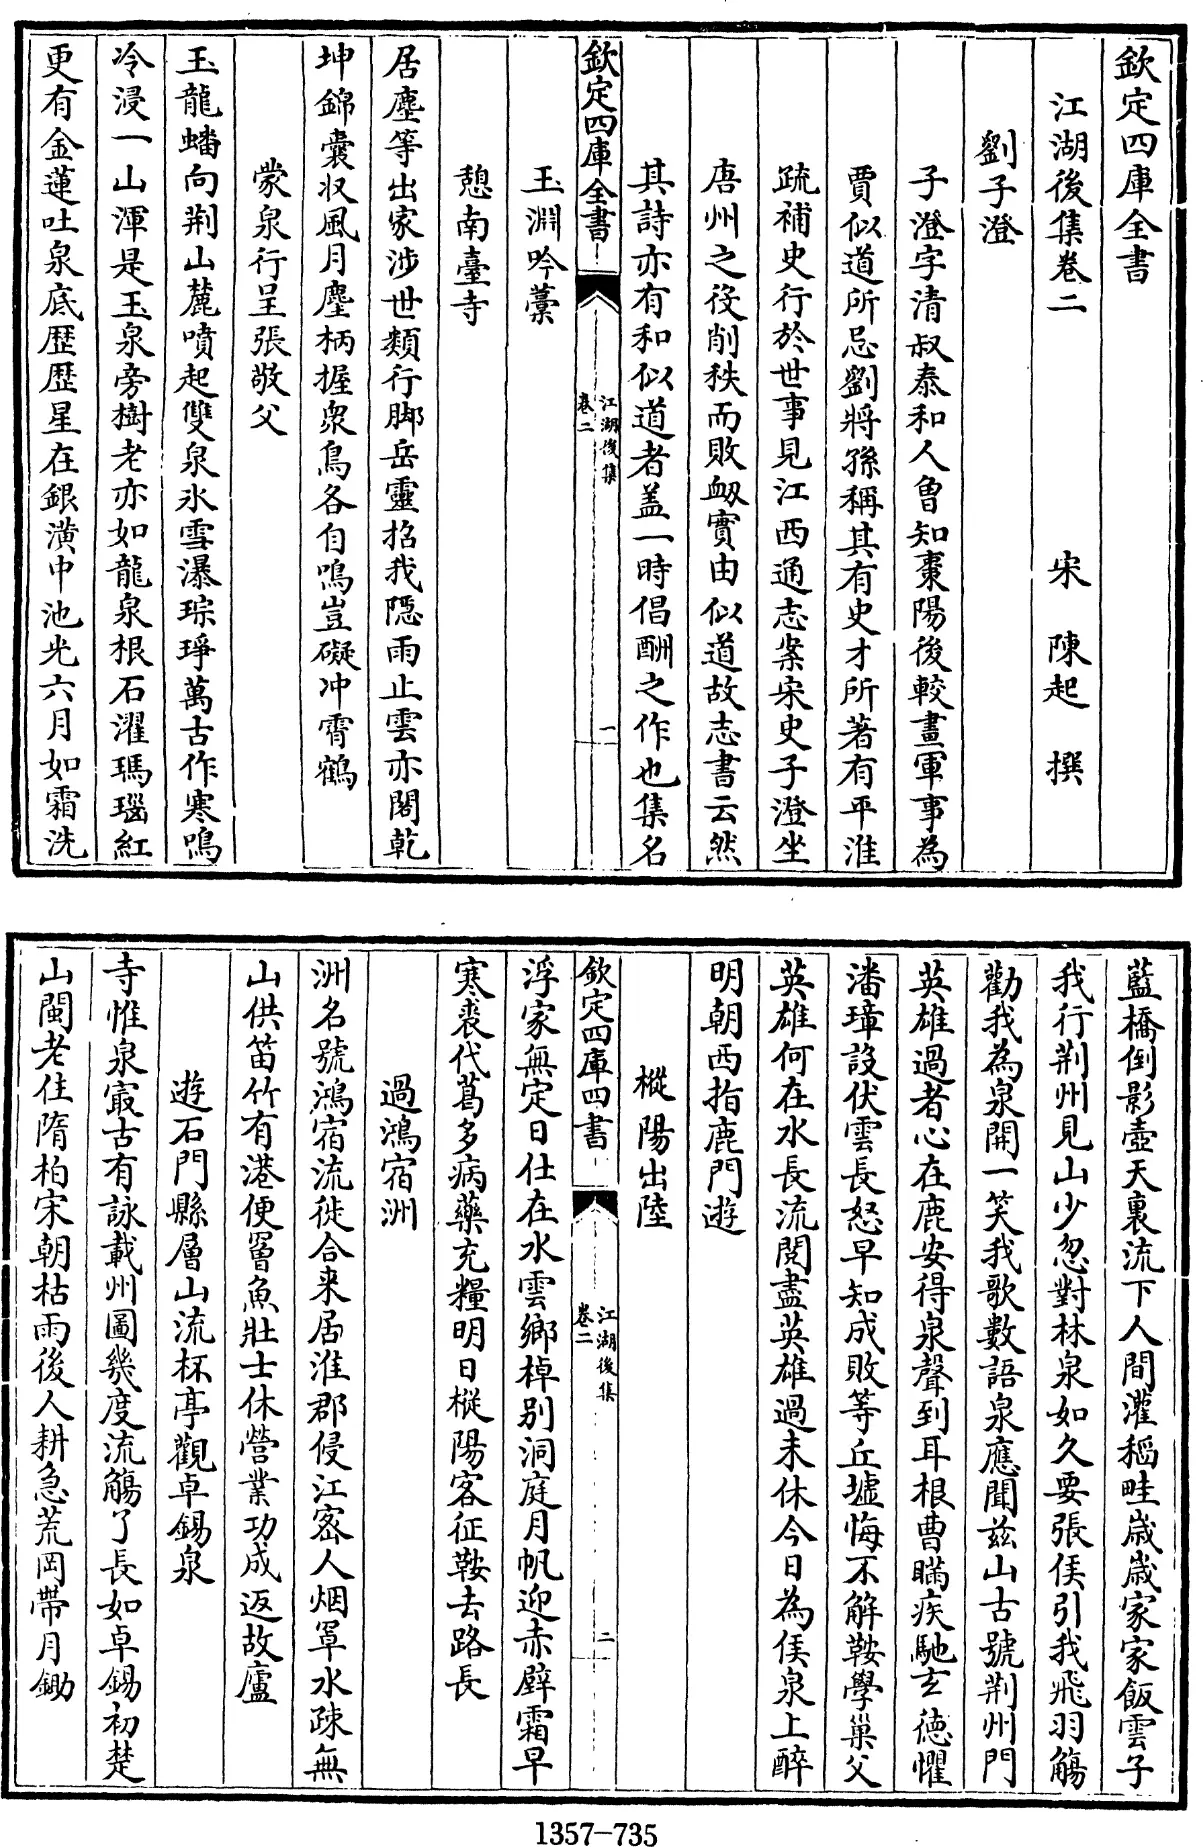 欽定四庫全書
江湖後集卷二
宋 陳起 撰
劉子澄
子澄字清叔泰和人曾知棗陽後較畫軍事為
賈似道所忌劉將孫稱其有史才所著有平淮
疏補史行於世事見江西通志案宋史子澄坐
唐州之役削秩而敗衂實由似道故志書云然
其詩亦有和似道者盖一時倡酬之作也集名
欽定四庫全書
江湖後集
卷二
一
玉淵吟藁
憩南臺寺
居塵等出家涉世類行脚岳靈招我隠雨止雲亦閣乾
坤錦囊収風月塵柄握衆鳥各自鳴豈礙冲霄鶴
蒙泉行呈張敬父
玉龍蟠向荆山麓噴起雙泉氷雪瀑琮琤萬古作寒鳴
冷浸一山渾是玉泉旁樹老亦如龍泉根石濯瑪瑙紅
更有金蓮吐泉底歴歴星在銀潢中池光六月如霜洗
藍橋倒影壺天裏流下人間灌稻畦歳歳家家飯雲子
我行荆州見山少忽對林泉如久要張侯引我飛羽觴
勸我為泉開一笑我歌數語泉應聞兹山古號荆州門
英雄過者心在鹿安得泉聲到耳根曹瞞疾馳玄德懼
潘璋設伏雲長怒早知成敗等丘墟悔不解鞍學巢父
英雄何在水長流閱盡英雄過未休今日為侯泉上醉
明朝西指鹿門遊
樅陽出陸
欽定四庫四書
江湖後集
卷二
二
浮家無定日仕在水雲鄉棹别洞庭月帆迎赤壁霜早
寒裘代葛多病藥充糧明日樅陽客征鞍去路長
過鴻宿洲
洲名號鴻宿流徙合来居淮郡侵江密人烟罩水疎無
山供笛竹有港便罾魚壯士休營業功成返故廬
遊石門縣層山流杯亭觀卓錫泉
寺惟泉㝡古有詠載州圖幾度流觴了長如卓錫初楚
山閩老住隋柏宋朝枯雨後人耕急荒岡帶月鋤
1357-735